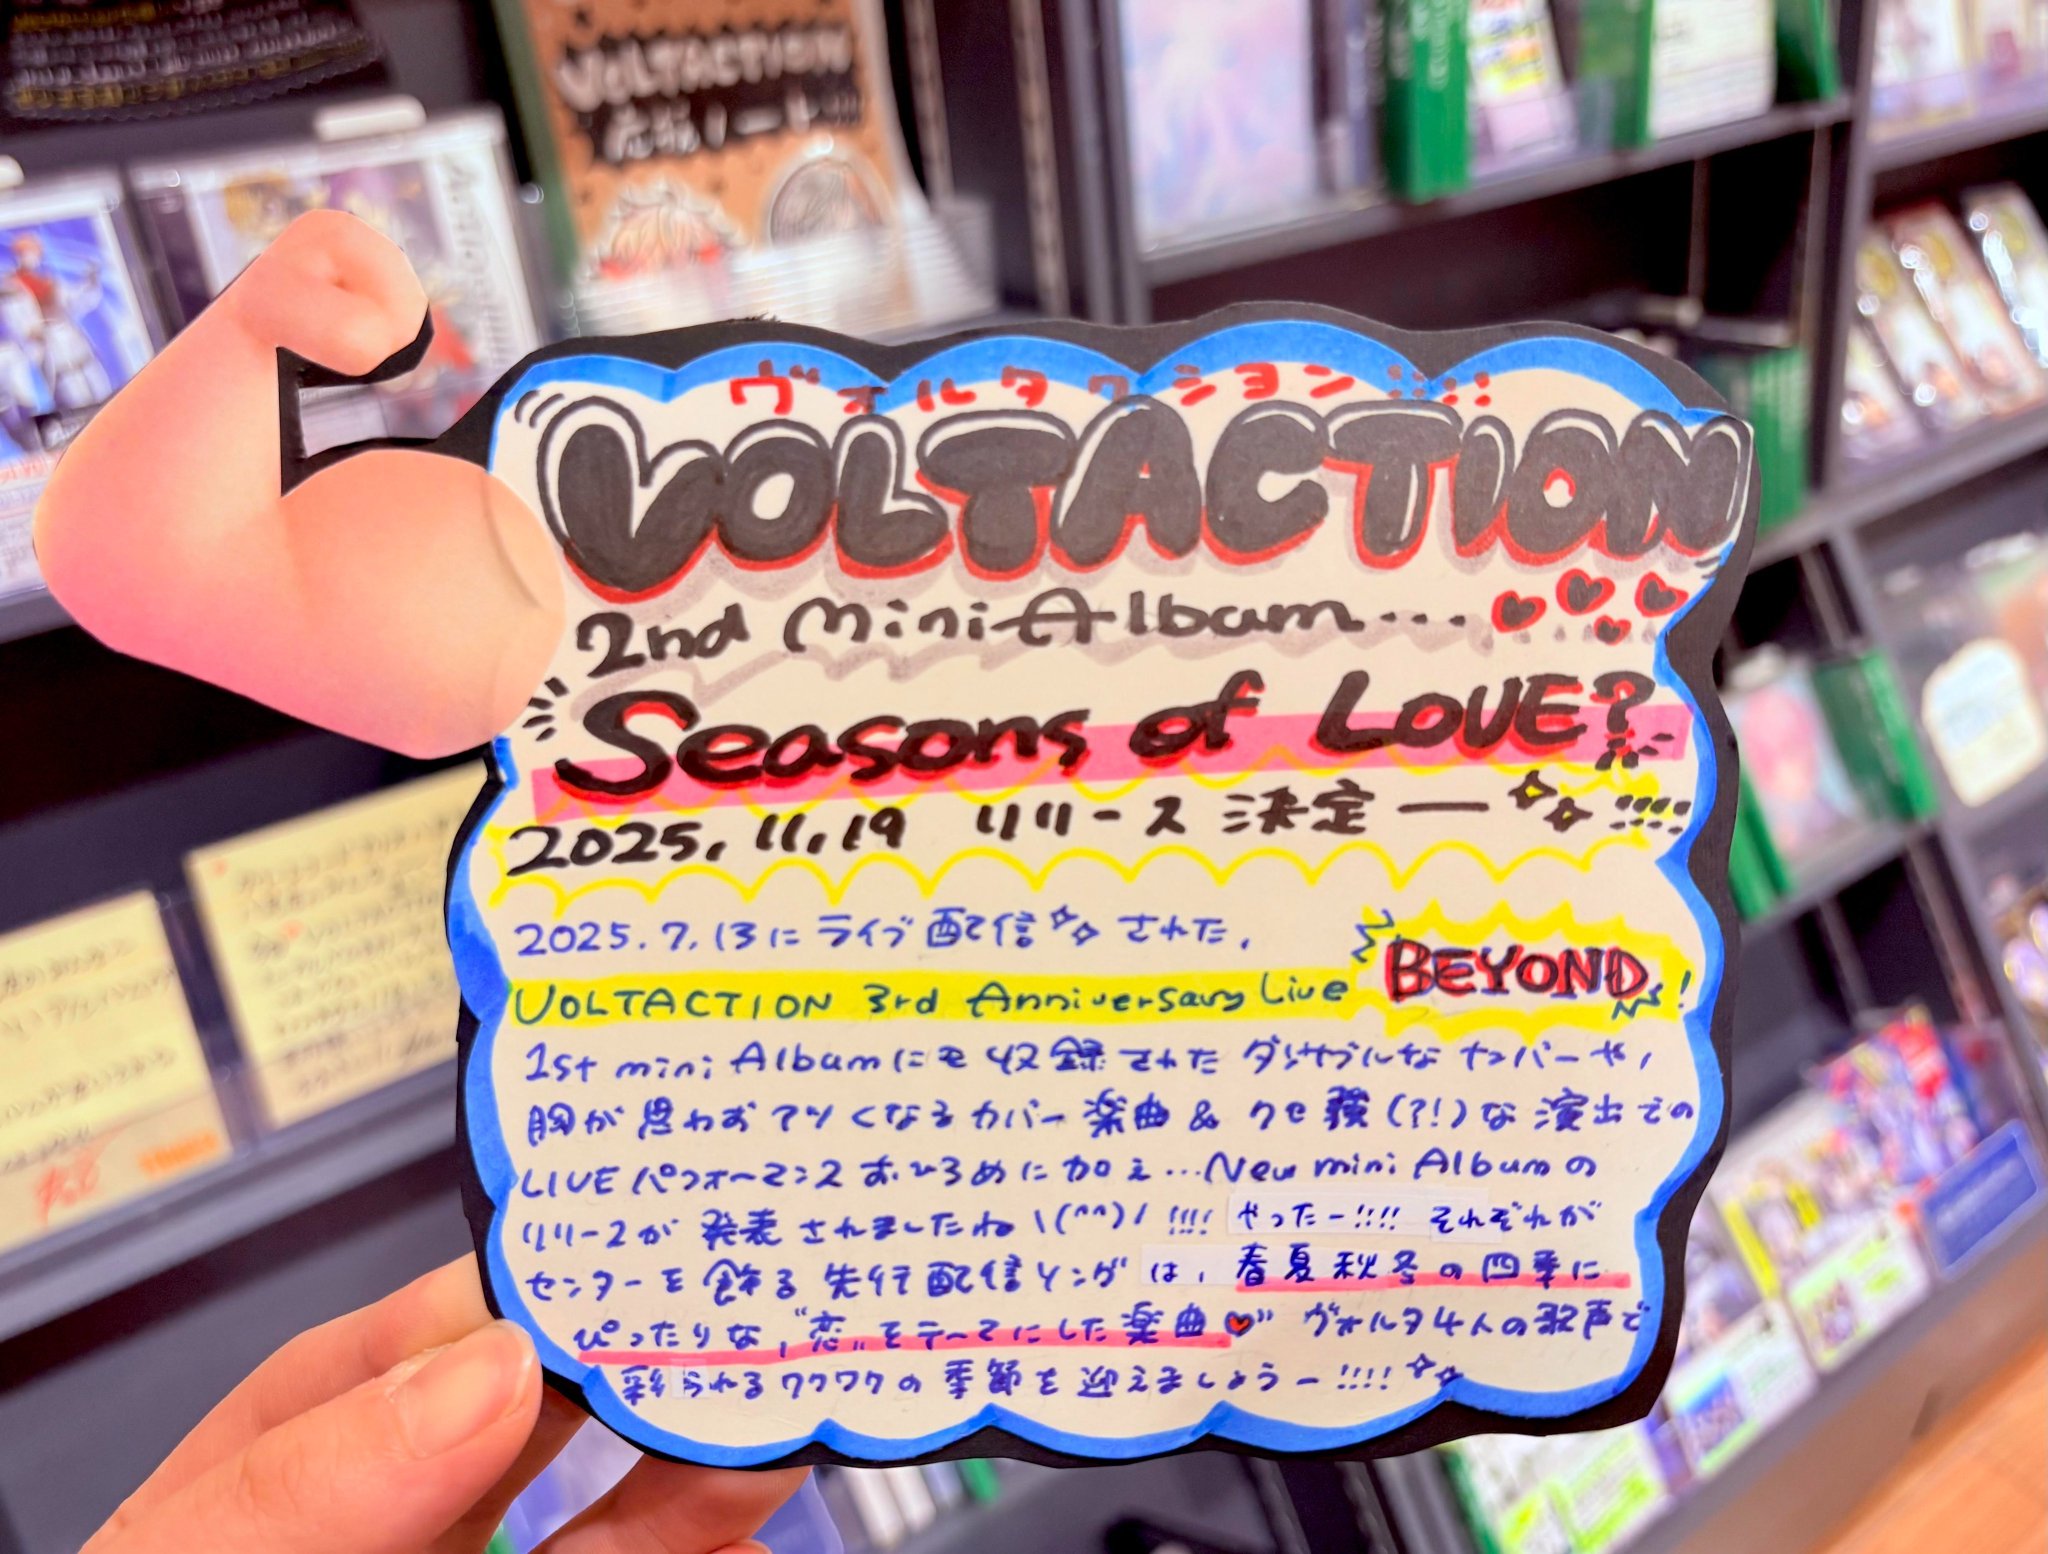 VOLTACTION
応援ノート!!!
ヴォルタクション!!!!
VOLTACTION
2nd mini Album...
Seasons of LOVE?
2025.11.19 リリース決定ー!!!!
2025.7.13にライブ配信された、
VOLTACTION 3rd Anniversary Live BEYOND!
1st mini Albumにも収録されたダンサブルなナンバーや、
胸が思わずアツくなるカバー楽曲&クセ強(?!)な演出での
LIVEパフォーマンスおひろめに加え...New mini Albumの
リリースが発表されましたね\(^^)/!!!! やったー!!!! それぞれが
センターを飾る先行配信ソングは、春夏秋冬の四季に
ぴったりな、"恋"をテーマにした楽曲♥" ヴォルタ4人の歌声で
彩られるワクワクの季節を迎えましょうー!!!!